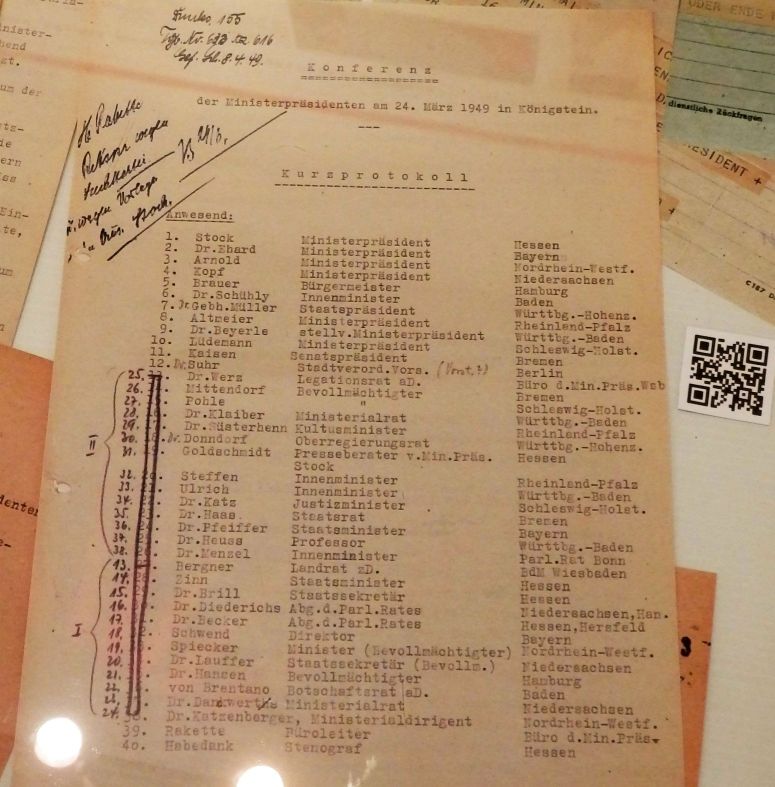 Tgb. Nr. 633 616
8.4.49.
Konferenz
der Ministerpräsidenten am 24. März 1949 in Königstein.
H. Rakette
wegen
wegen Vorlage
Stock.
Kurzprotokoll
Anwesend:
1. Stock Ministerpräsident Hessen
2. Dr.Ehard Ministerpräsident Bayern
3. Arnold Ministerpräsident Nordrhein-Westf.
4. Kopf Ministerpräsident Niedersachsen
5. Brauer Bürgermeister Hamburg
6. Dr.Schühly Innenminister Baden
7. Dr.Gebh.Müller Staatspräsident Württbg.-Hohenz.
8. Altmeier Ministerpräsident Rheinland-Pfalz
9. Dr.Beyerle stellv.Ministerpräsident Württbg.-Baden
10. Lüdemann Ministerpräsident Schleswig-Holst.
11. Kaisen Senatspräsident Bremen
12. Dr.Suhr Stadtverord.Vors. (Vorst.?) Berlin
25. Dr.Werz Legationsrat aD. Büro d.Min.Präs.Wsb
26. Mittendorf Bevollmächtigter Bremen
27. Pohle " Schleswig-Holst.
28. Dr.Klaiber Ministerialrat Württbg.-Baden
29. Dr.Süsterhenn Kultusminister Rheinland-Pfalz
II 30. Dr.Donndorf Oberregierungsrat Württbg.-Hohenz.
31. Goldschmidt Presseberater v.Min.Präs. Hessen
Stock
32. Steffen Innenminister Rheinland-Pfalz
33. Ulrich Innenminister Württbg.-Baden
34. Dr.Katz Justizminister Schleswig-Holst.
35. Dr.Haas Staatsrat Bremen
36. Dr.Pfeiffer Staatsminister Bayern
37. Dr.Heuss Professor Württbg.-Baden
38. Dr.Menzel Innenminister Parl.Rat Bonn
13. Bergner Landrat zD. BdM Wiesbaden
14. Zinn Staatsminister Hessen
15. Dr.Brill Staatssekretär Hessen
16. Dr.Diederichs Abg.d.Parl.Rates Niedersachsen,Han.
17. Dr.Becker Abg.d.Parl.Rates Hessen,Hersfeld
I 18. Schwend Direktor Bayern
19. Spiecker Minister (Bevollmächtigter) Nordrhein-Westf.
20. Dr.Lauffer Staatssekretär (Bevollm.) Niedersachsen
21. Dr.Hansen Bevollmächtigter Hamburg
22. von Brentano Botschaftsrat aD. Baden
23. Dr.Danckwerts Ministerialrat Niedersachsen
24. Dr.Katzenberger, Ministerialdirigent Nordrhein-Westf.
39. Rakette Büroleiter Büro d.Min.Präs.
40. Habedank Stenograf Hessen
ODER ENDE
dienstliche Rückfragen
ESIDENT +
C187